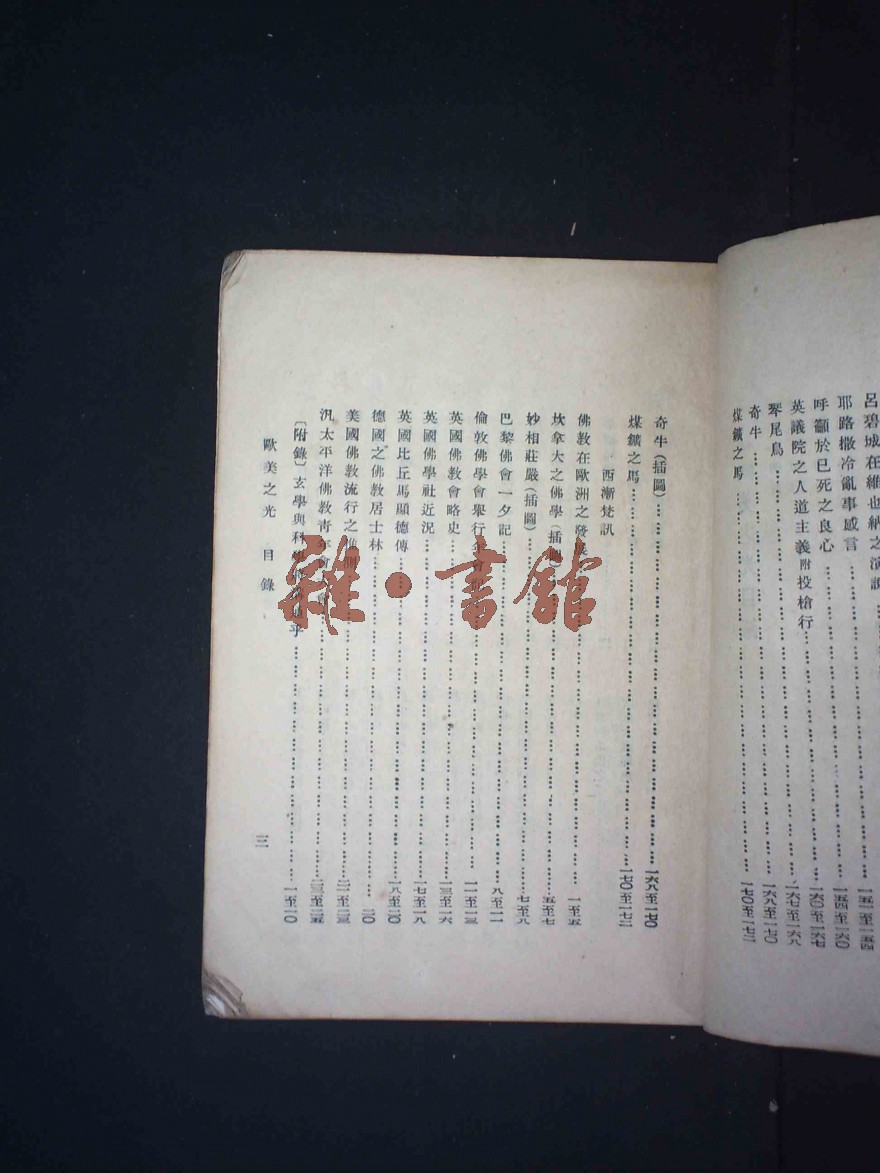 呂碧城在維也納之演說
一五一至一五四
耶路撒冷亂事感言
一五四至一六〇
呼籲於已死之良心
一六〇至一六七
英議院之人道主義附投槍行
一六七至一六八
琴尾鳥
一六八至一七〇
奇牛
煤鑛之馬
一七〇至一七二
奇牛(插圖)
一六八至一七〇
煤鑛之馬
一七〇至一七二
西漸梵訊
佛教在歐洲之發展
一至五
坎拿大之佛學(插圖)
五至七
妙相莊嚴(插圖)
七至八
巴黎佛會一夕記
八至一一
倫敦佛學會舉行年會
一一至一三
英國佛教會略史
一三至一六
英國佛學社近況
一七至一八
英國比丘馬顯德傳
一八至二〇
德國之佛教居士林
二〇
美國佛教流行之推測
二一至二三
汎太平洋佛教青年會
二三至二五
〔附錄〕玄學與科
乎
一至一〇
歐美之光 目錄
三
雜·書館